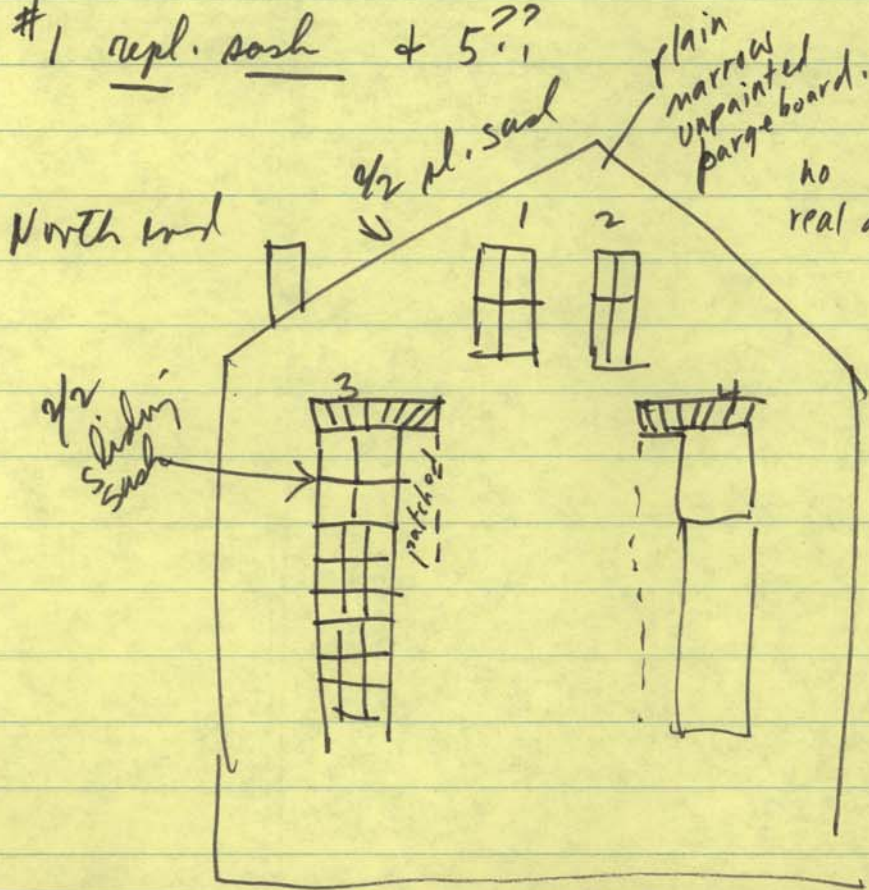 #1 repl. sash + 5??
plain
narrow
unpainted
bargeboard.
2/2 sl. sash
no
real
North end
1
2
3
4
2/2
sliding
sash
patched